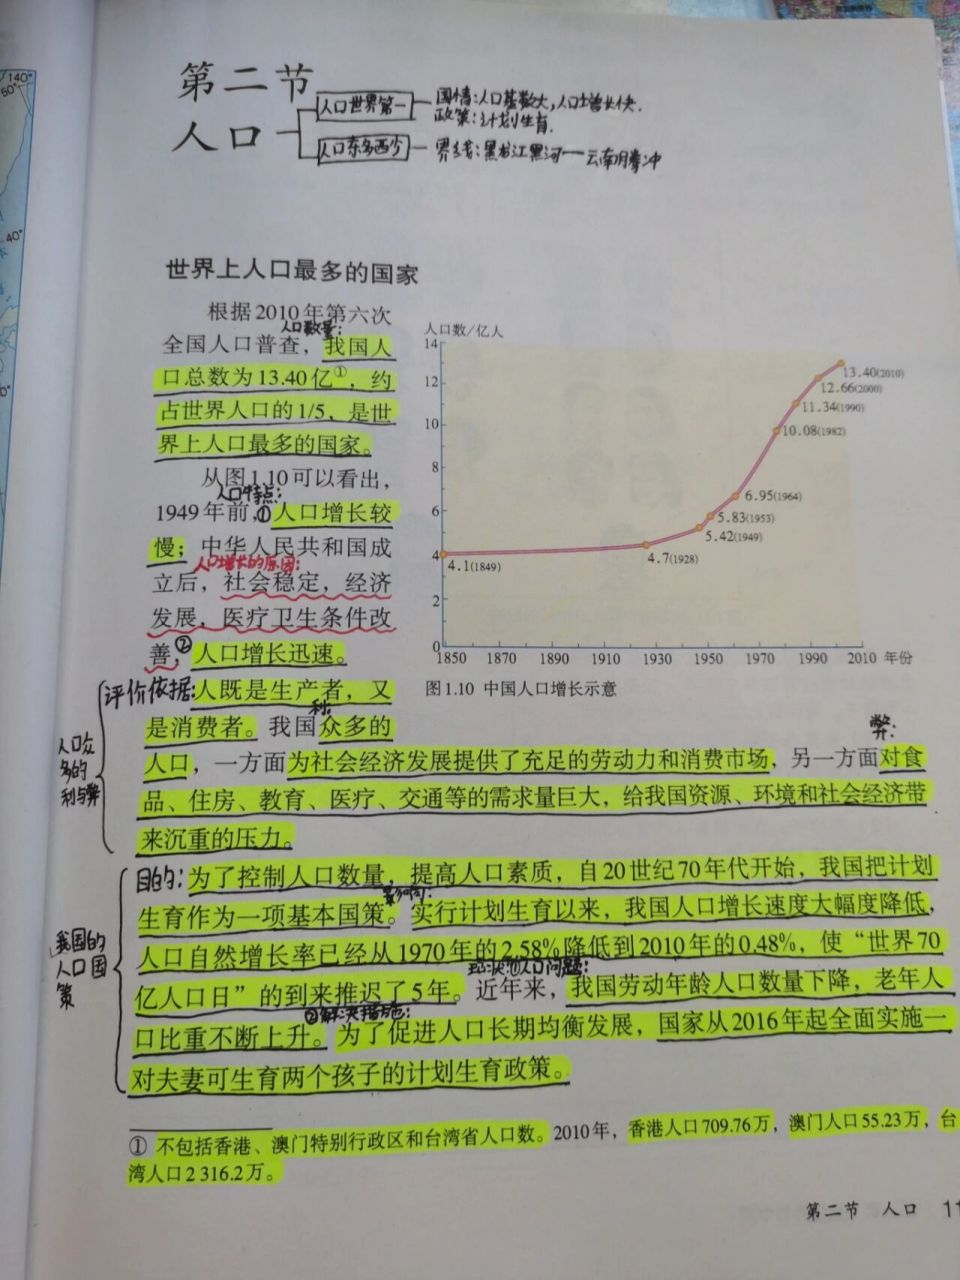 140°
50°
40°
第二节
人口
人口世界第一
国情:人口基数大,人口增长快.
政策:计划生育.
人口东多西少
界线:黑龙江黑河——云南腾冲
世界上人口最多的国家
根据2010年第六次
人口数量:
全国人口普查，我国人
口总数为13.40亿①，约
占世界人口的1/5，是世
界上人口最多的国家。
从图1.10可以看出，
人口特点:
1949年前，①人口增长较
慢；中华人民共和国成
人口增长的原因:
立后，社会稳定，经济
发展，医疗卫生条件改
善，②人口增长迅速。
人口数/亿人
14
12
10
8
6
4
2
0
4.1(1849)
4.7(1928)
5.42(1949)
5.83(1953)
6.95(1964)
10.08(1982)
11.34(1990)
12.66(2000)
13.40(2010)
1850 1870 1890 1910 1930 1950 1970 1990 2010 年份
图1.10 中国人口增长示意
人口众多的利与弊
评价依据:人既是生产者，又
利:
是消费者。我国众多的
弊:
人口，一方面为社会经济发展提供了充足的劳动力和消费市场，另一方面对食
品、住房、教育、医疗、交通等的需求量巨大，给我国资源、环境和社会经济带
来沉重的压力。
我国的人口国策
目的:为了控制人口数量，提高人口素质，自20世纪70年代开始，我国把计划
影响:
生育作为一项基本国策。实行计划生育以来，我国人口增长速度大幅度降低，
人口自然增长率已经从1970年的2.58%降低到2010年的0.48%，使“世界70
现状:①人口问题:
亿人口日”的到来推迟了5年。近年来，我国劳动年龄人口数量下降，老年人
②解决措施:
口比重不断上升。为了促进人口长期均衡发展，国家从2016年起全面实施一
对夫妻可生育两个孩子的计划生育政策。
① 不包括香港、澳门特别行政区和台湾省人口数。2010年，香港人口709.76万，澳门人口55.23万，台
湾人口2 316.2万。
第二节 人口 11